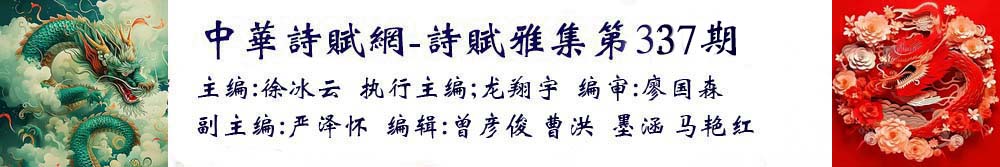 中華詩賦網-詩賦雅集第337期
主编:徐冰云 执行主编;龙翔宇 编审:廖国森
副主编:严泽怀 编辑:曾彦俊 曹洪 墨涵 马艳红